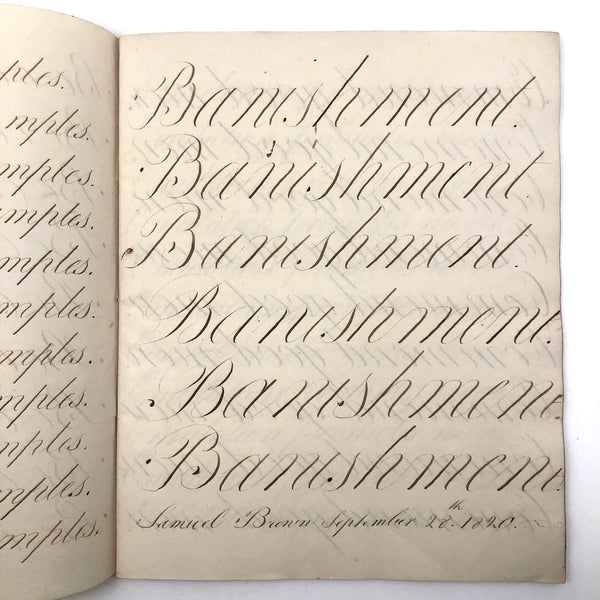 mples.
mples.
mples.
mples.
mples.
mples.
mples.
mples.
mples.
mples.
mples.
Banishment.
Banishment.
Banishment.
Banishment.
Banishment.
Banishment.
Samuel Brown September 28th. 1820.